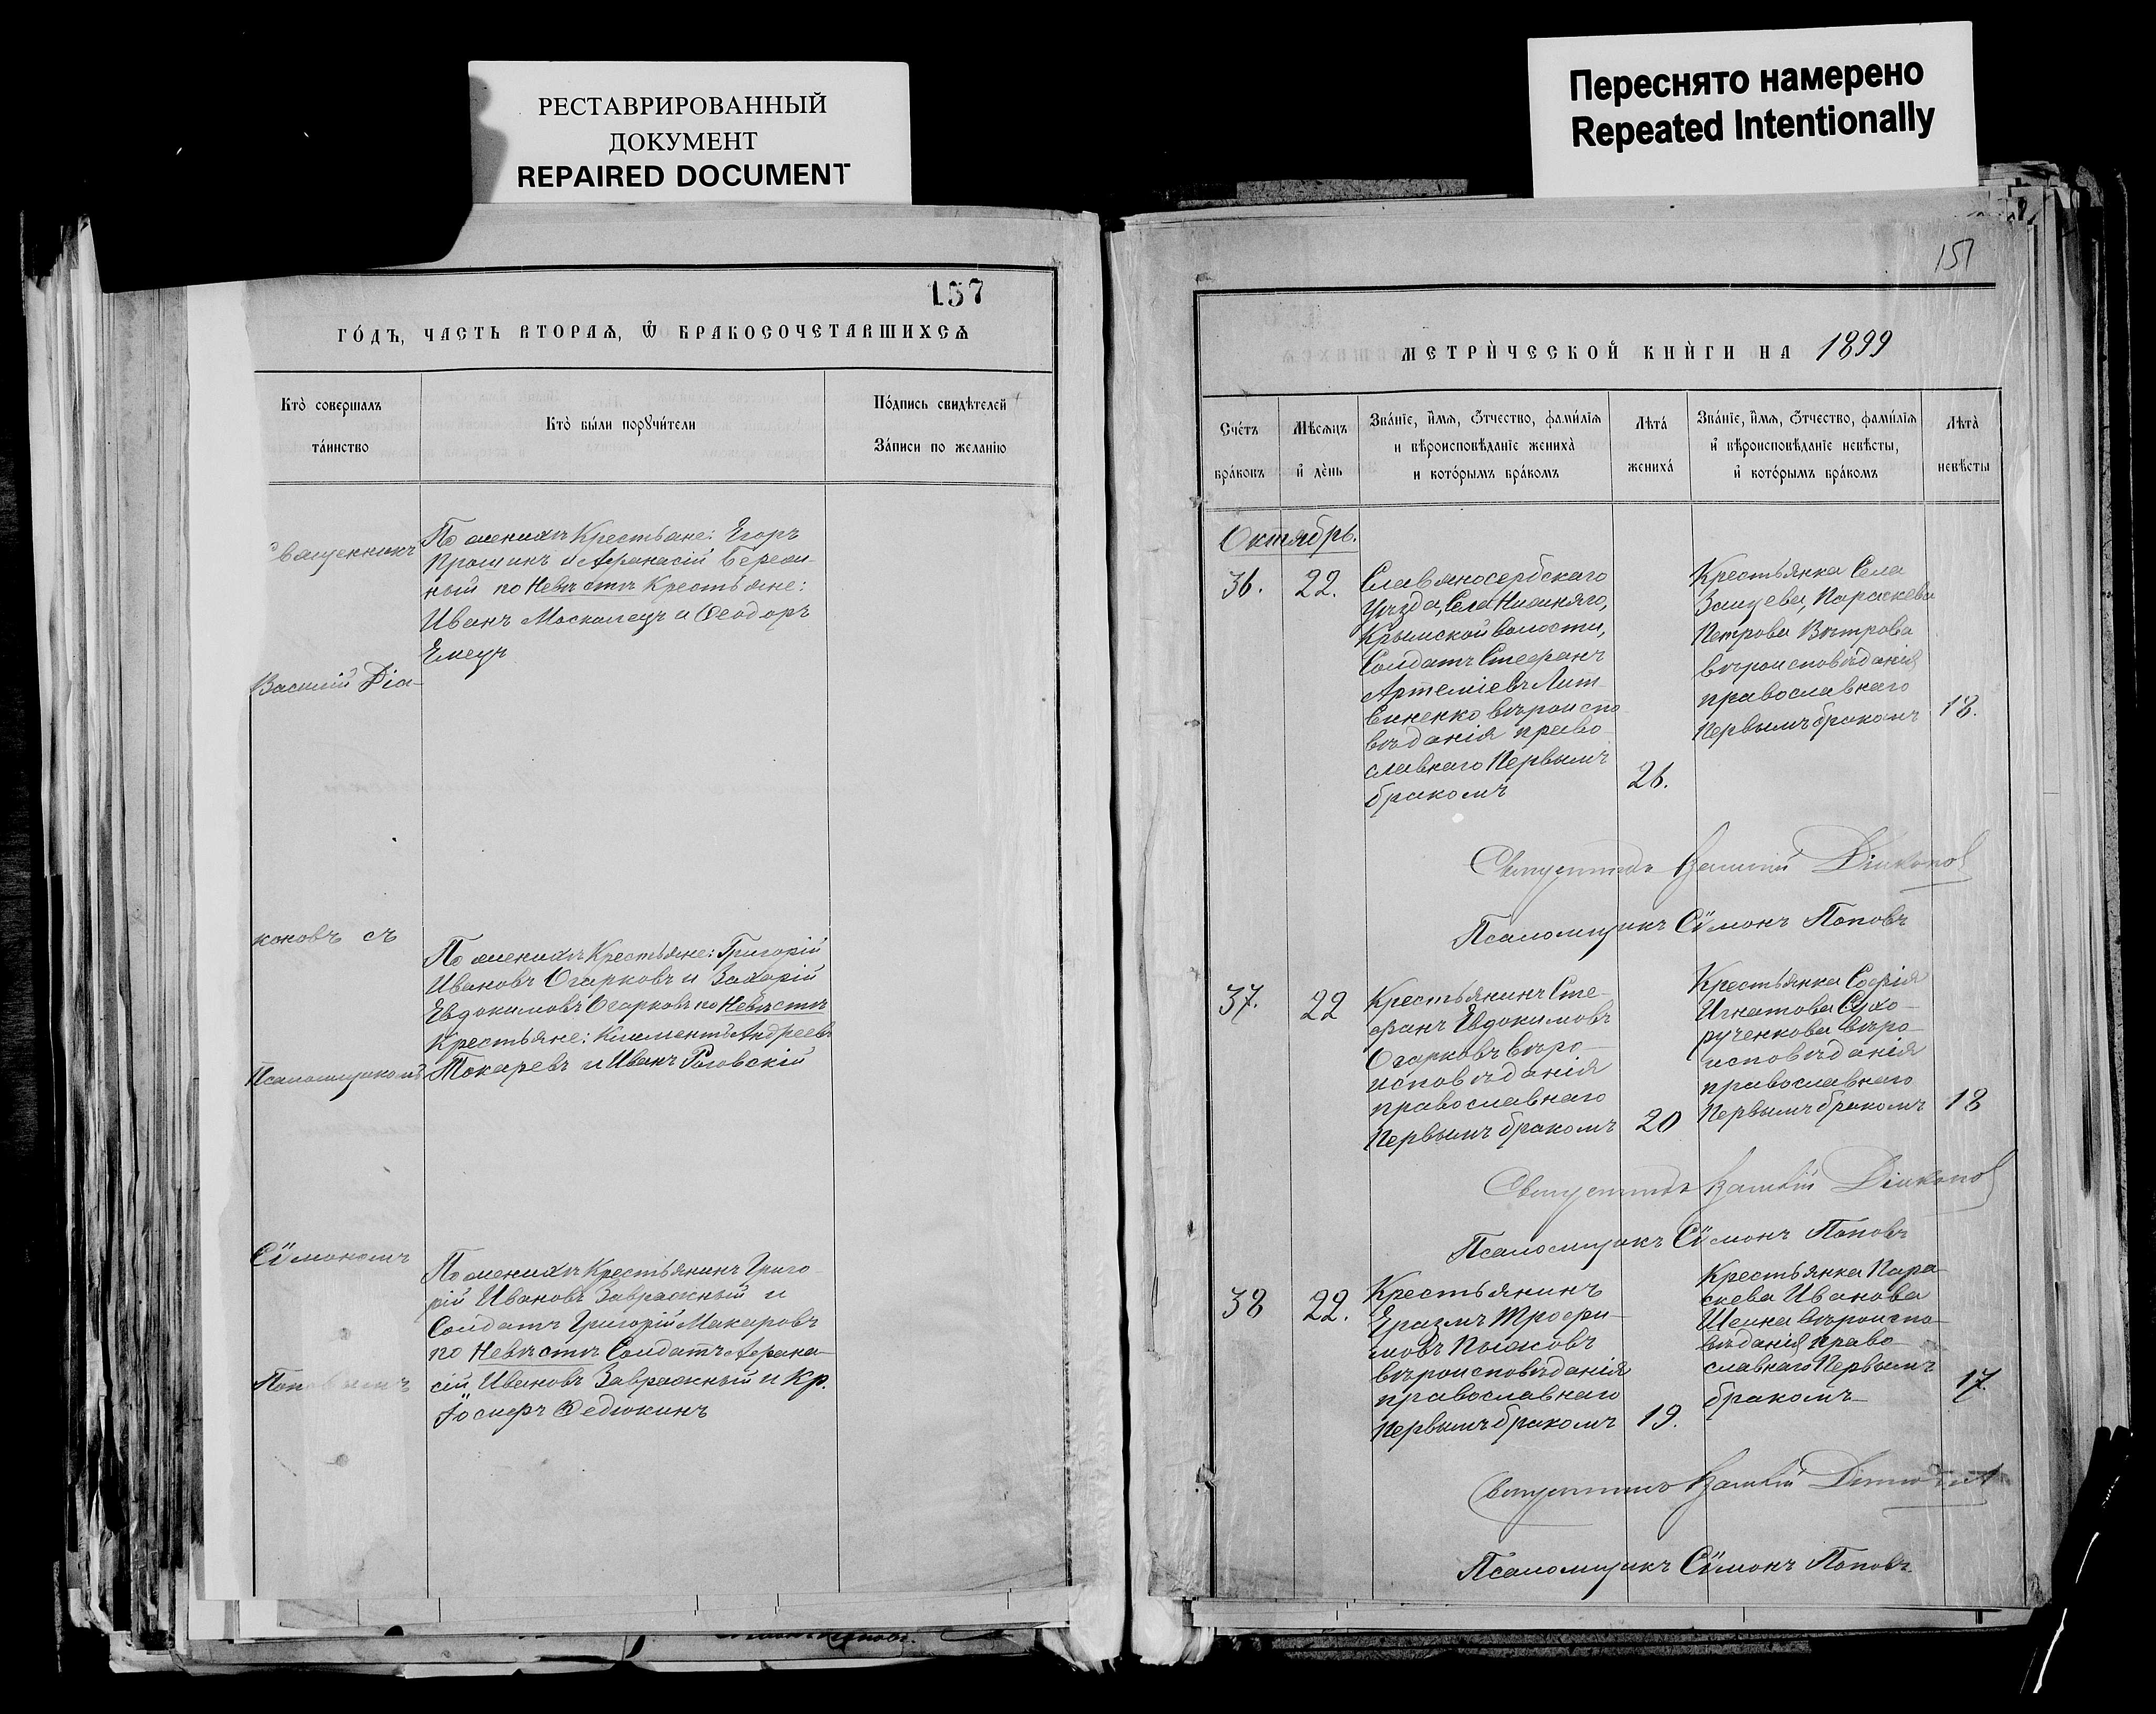 РЕСТАВРИРОВАННЫЙ
ДОКУМЕНТ
REPAIRED DOCUMENT
Переснято намерено
Repeated Intentionally
157
ГО́ДЪ, ЧАСТЬ ВТОРАѦ, Ѿ БРАКОСОЧЕТАВШИХСѦ
Кто̀ совершалъ
та́инство
Кто̀ бы́ли порꙋчи́тели
По́дпись свидѣ́телей
За́писи по жела́нію
Священникъ
Василій Діа-
коновъ съ
Псаломщикомъ
Сѵмономъ
По женихѣ Крестьяне: Егоръ
Прошинъ и Афанасій Береж-
ный по Невѣстѣ Крестьяне:
Иванъ Москалецъ и Ѳеодоръ
Емецъ
По женихѣ Крестьяне: Григорій
Ивановъ Огарковъ и Захарій
Евдокимовъ Огарковъ по Невѣстѣ
Крестьяне: Климентъ Андреевъ
Токаревъ и Иванъ Роговскій
По женихѣ Крестьянинъ Григо-
рій Ивановъ Завражный и
Солдатъ Григорій Макаровъ
по Невѣстѣ Солдатъ Афана-
сій Ивановъ Завражный и Кр.
Іосифъ Федюкинъ
151
МЕТРИ́ЧЕСКОЙ КНИ́ГИ НА 1899
Сче́тъ
бра́ковъ
Мѣ́сяцъ
и҆ де́нь
Зва́ніе, и҆́мя, ѻ҆́тчество, фами́лія
и вѣроисповѣ́даніе жениха̀
и кото́рымъ бра́комъ
Лѣта̀
жениха́
Зва́ніе, и҆́мя, ѻ҆́тчество, фами́лія
и҆ вѣроисповѣ́даніе невѣ́сты,
и҆ кото́рымъ бра́комъ
Лѣта̀
невѣ́сты
Октябрь.
36.
22.
Славяносербскаго
Уѣзда, Села Нижняго,
Крымской волости,
Солдатъ Стефанъ
Артеміевъ Лит-
виненко вѣроиспо-
вѣданія право-
славнаго Первымъ
бракомъ
26.
Крестьянка Села
Зайцева, Параскева
Петрова Вѣтрова
вѣроисповѣданія
православнаго
Первымъ бракомъ
18.
Священникъ Василій Діаконов
Псаломщикъ Сѵмонъ Поповъ
37.
22
Крестьянинъ Сте-
фанъ Евдокимовъ
Огарковъ вѣро-
исповѣданія
православнаго
Первымъ бракомъ
20
Крестьянка Софія
Игнатова Сухо-
рученкова вѣро-
исповѣданія
православнаго
Первымъ бракомъ
18
Священникъ Василій Діаконов
Псаломщикъ Сѵмонъ Поповъ
38
22.
Крестьянинъ
Еразмъ Трофи-
мовъ Пыжовъ
вѣроисповѣданія
православнаго
Первымъ бракомъ
19.
Крестьянка Пара-
скева Иванова
вѣроиспо-
вѣданія право-
славнаго Первымъ
бракомъ
17.
Священникъ Василій
Псаломщикъ Сѵмонъ Поповъ.